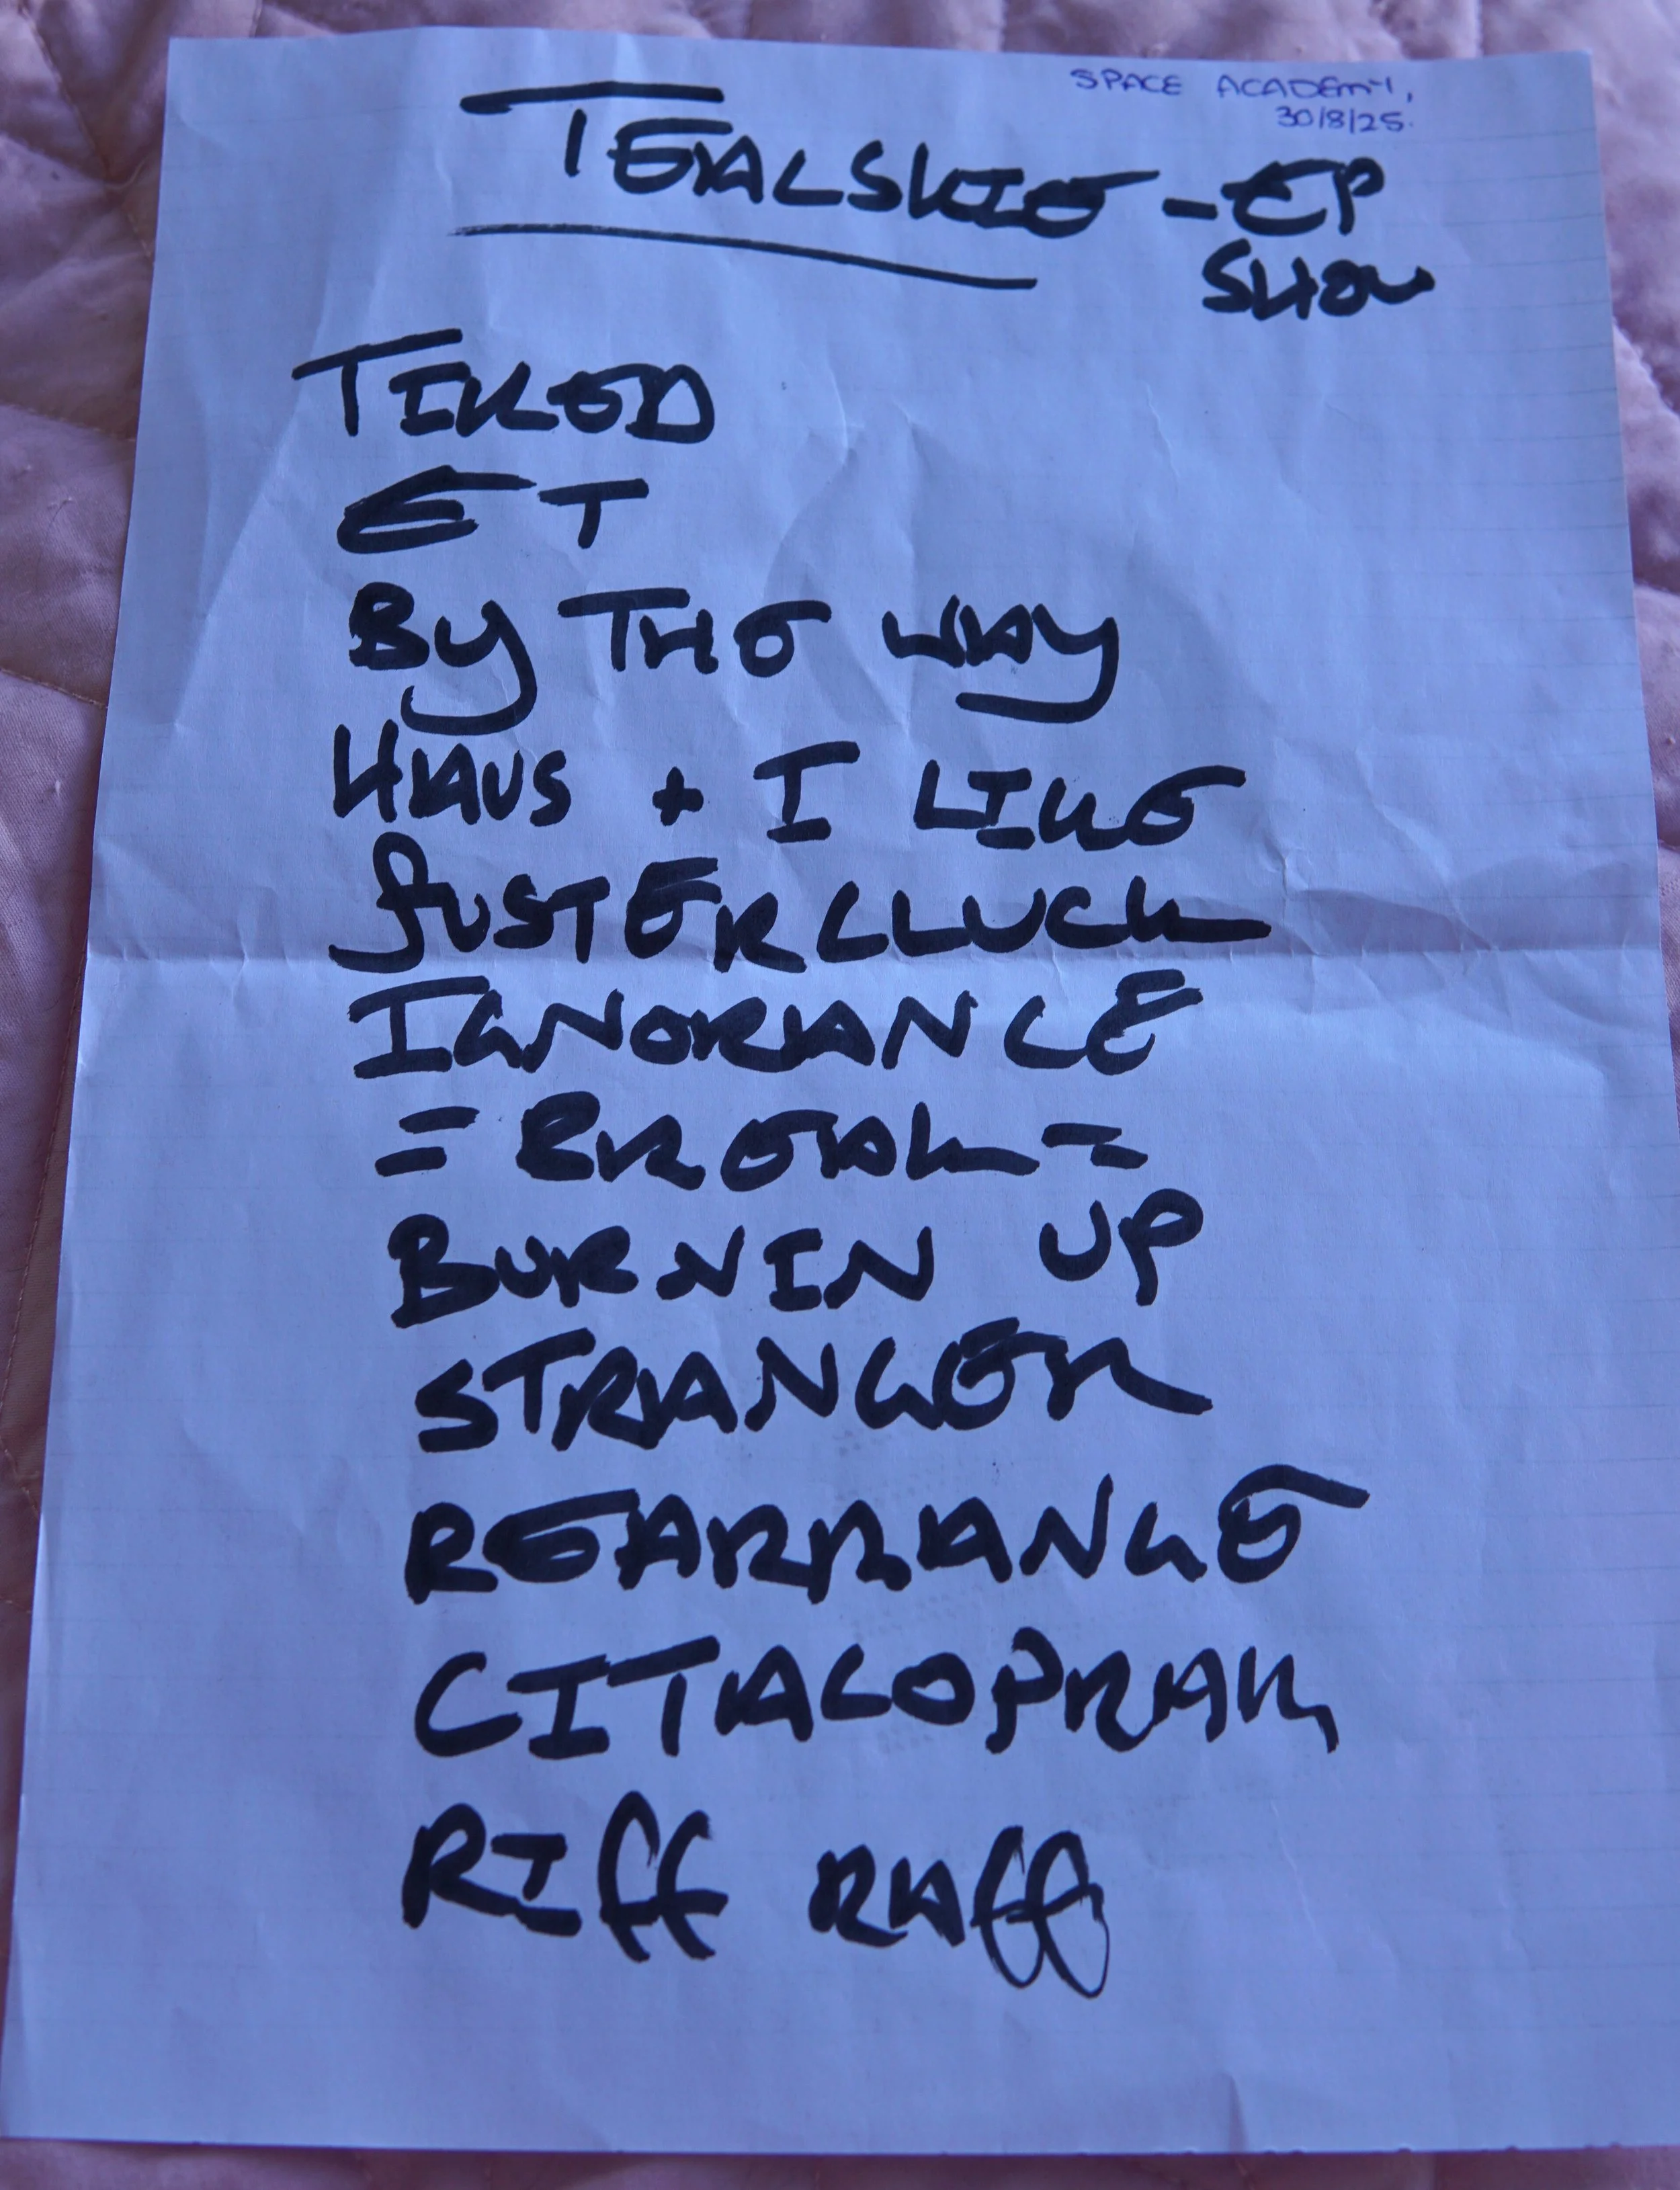 SPACE ACADEMY,
30/8/25.
TEALSKIE - EP
SHOW
TIRED
ET
By THE WAy
HAUS + I LIKE
fUSTERCLUCK
IGNORANCE
= BREAK =
BURNIN UP
STRANGER
REARRANGE
CITALOPRAM
RIff RAff